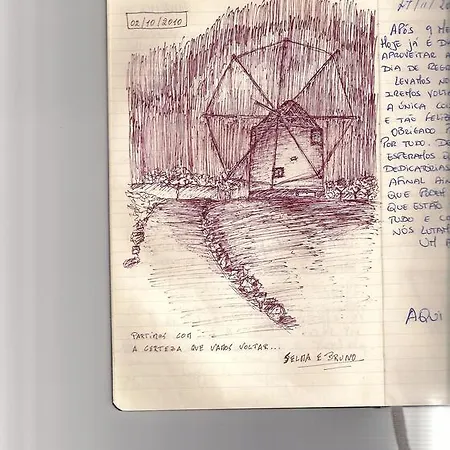 02/10/2010
PARTIMOS COM
A CERTEZA QUE VAMOS VOLTAR...
SELMA E BRUNO
APÓS 9 
HOJE JÁ É
APROVEITAR A
DIA DE
LEVAMOS
IREMOS
A ÚNICA
E TÃO
OBRIGADO
POR TUDO.
ESPERAMOS
DEDICATÓRIAS
AFINAL
QUE PODEM
QUE ESTÃO
TUDO E
NÓS
UM
AQUI